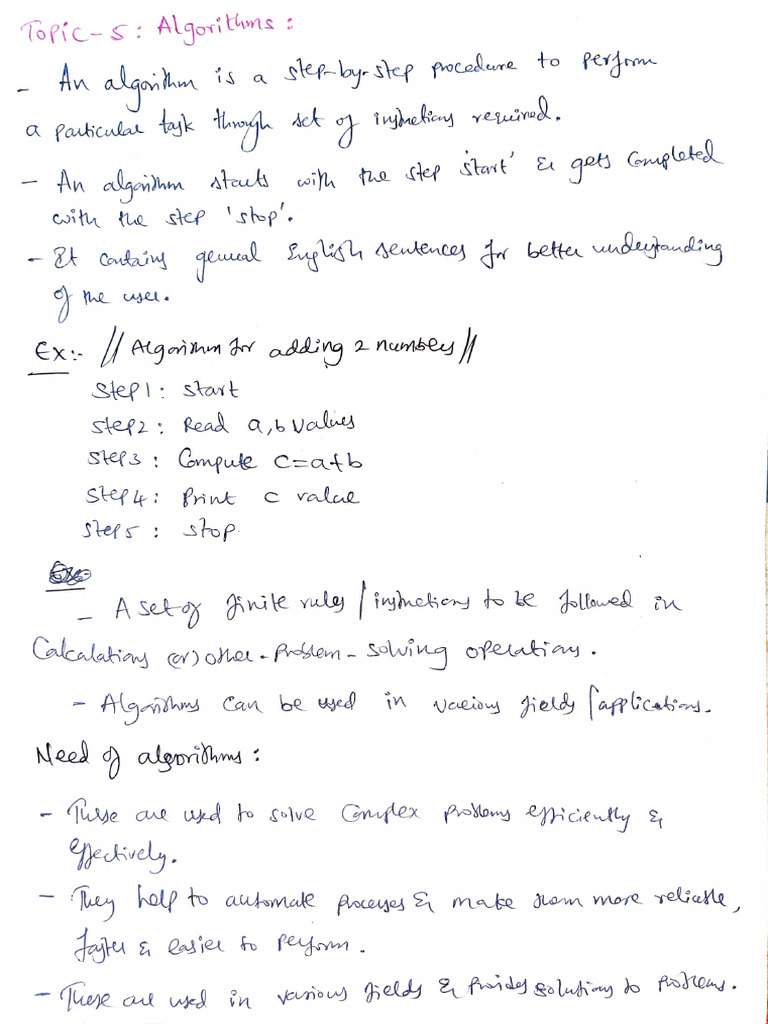 Topic-5: Algorithms:
- An algorithm is a step-by-step procedure to perform
a particular task through set of instructions required.
- An algorithm starts with the step 'start' & gets completed
with the step 'stop'.
- It contains general English sentences for better understanding
of the user.
Ex:- // Algorithm for adding 2 numbers //
Step1: start
Step2: Read a,b values
Step3: Compute c=a+b
Step4: Print c value
Step5: stop
- A set of finite rules / instructions to be followed in
Calculations (or) other-problem-solving operations.
- Algorithms can be used in various fields / applications.
Need of algorithms:
- These are used to solve complex problems efficiently &
effectively.
- They help to automate processes & make them more reliable,
faster & easier to perform.
- These are used in various fields & provides solutions to problems.